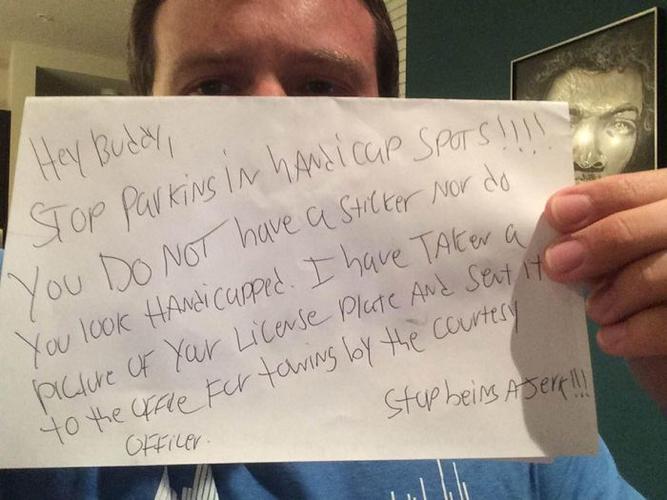 Hey Buddy,
STOP Parking in handicap spots!!!!
You DO NOT have a sticker nor do
you look Handicapped. I have TAken a
picture of Your License Plate And Sent It
to the office For towing by the courtesy
officer.
Stop being A Jerk!!!